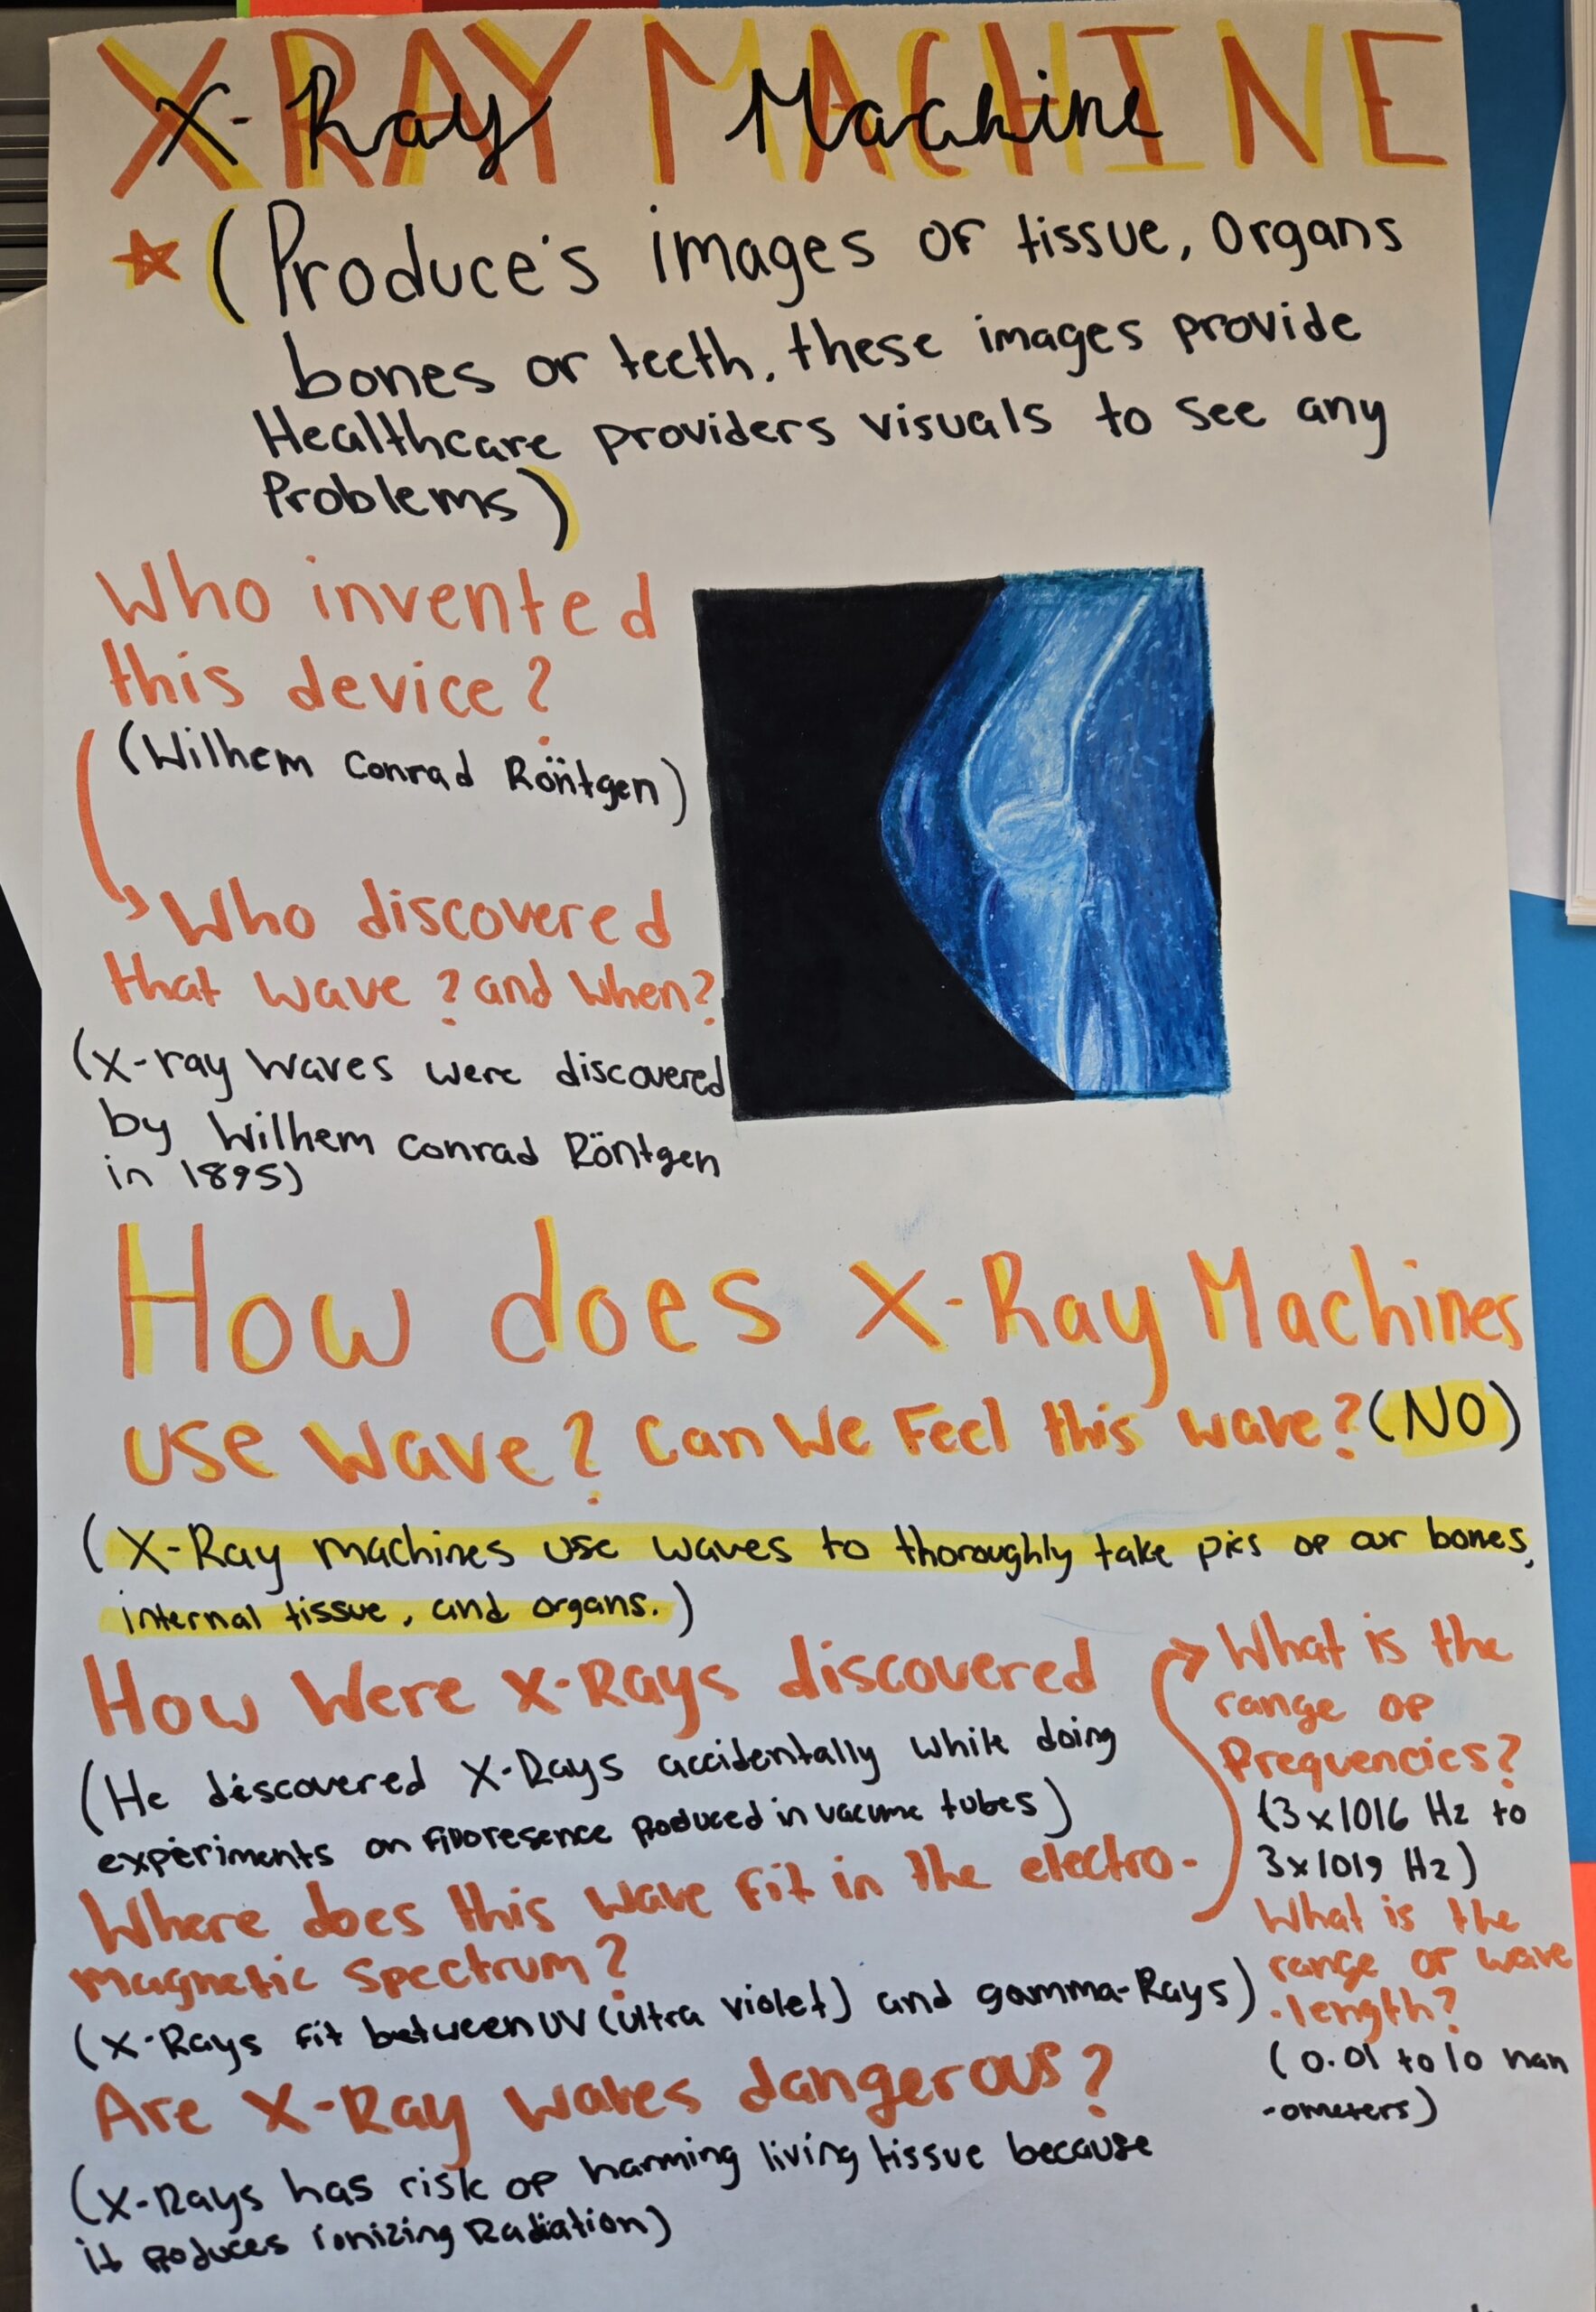 X-RAY MACHINE
X-Ray Machine
(Produce's images OF tissue, Organs
bones or teeth, these images provide
Healthcare providers visuals to see any
Problems)
Who invented
this device?
(Wilhem Conrad Röntgen)
Who discovered
that wave? and when?
(X-ray waves were discovered
by Wilhem Conrad Röntgen
in 1895)
How does X-Ray Machines
use wave? Can We Feel this wave? (NO)
(X-Ray machines use waves to thoroughly take pics of our bones,
internal tissue, and organs.)
How Were X-Rays discovered
(He discovered X-Rays accidentally while doing
experiments on Fluoresence produced in vacume tubes)
Where does this wave fit in the electro-
magnetic Spectrum?
(X-Rays fit between UV (ultra violet) and gamma-Rays)
Are X-Ray waves dangerous?
(X-Rays has risk of harming living tissue because
it produces ionizing Radiation)
What is the
range of
Frequencies?
(3x1016 Hz to
3x1019 Hz)
What is the
range of wave
-length?
(0.01 to 10 nan
-ometers)